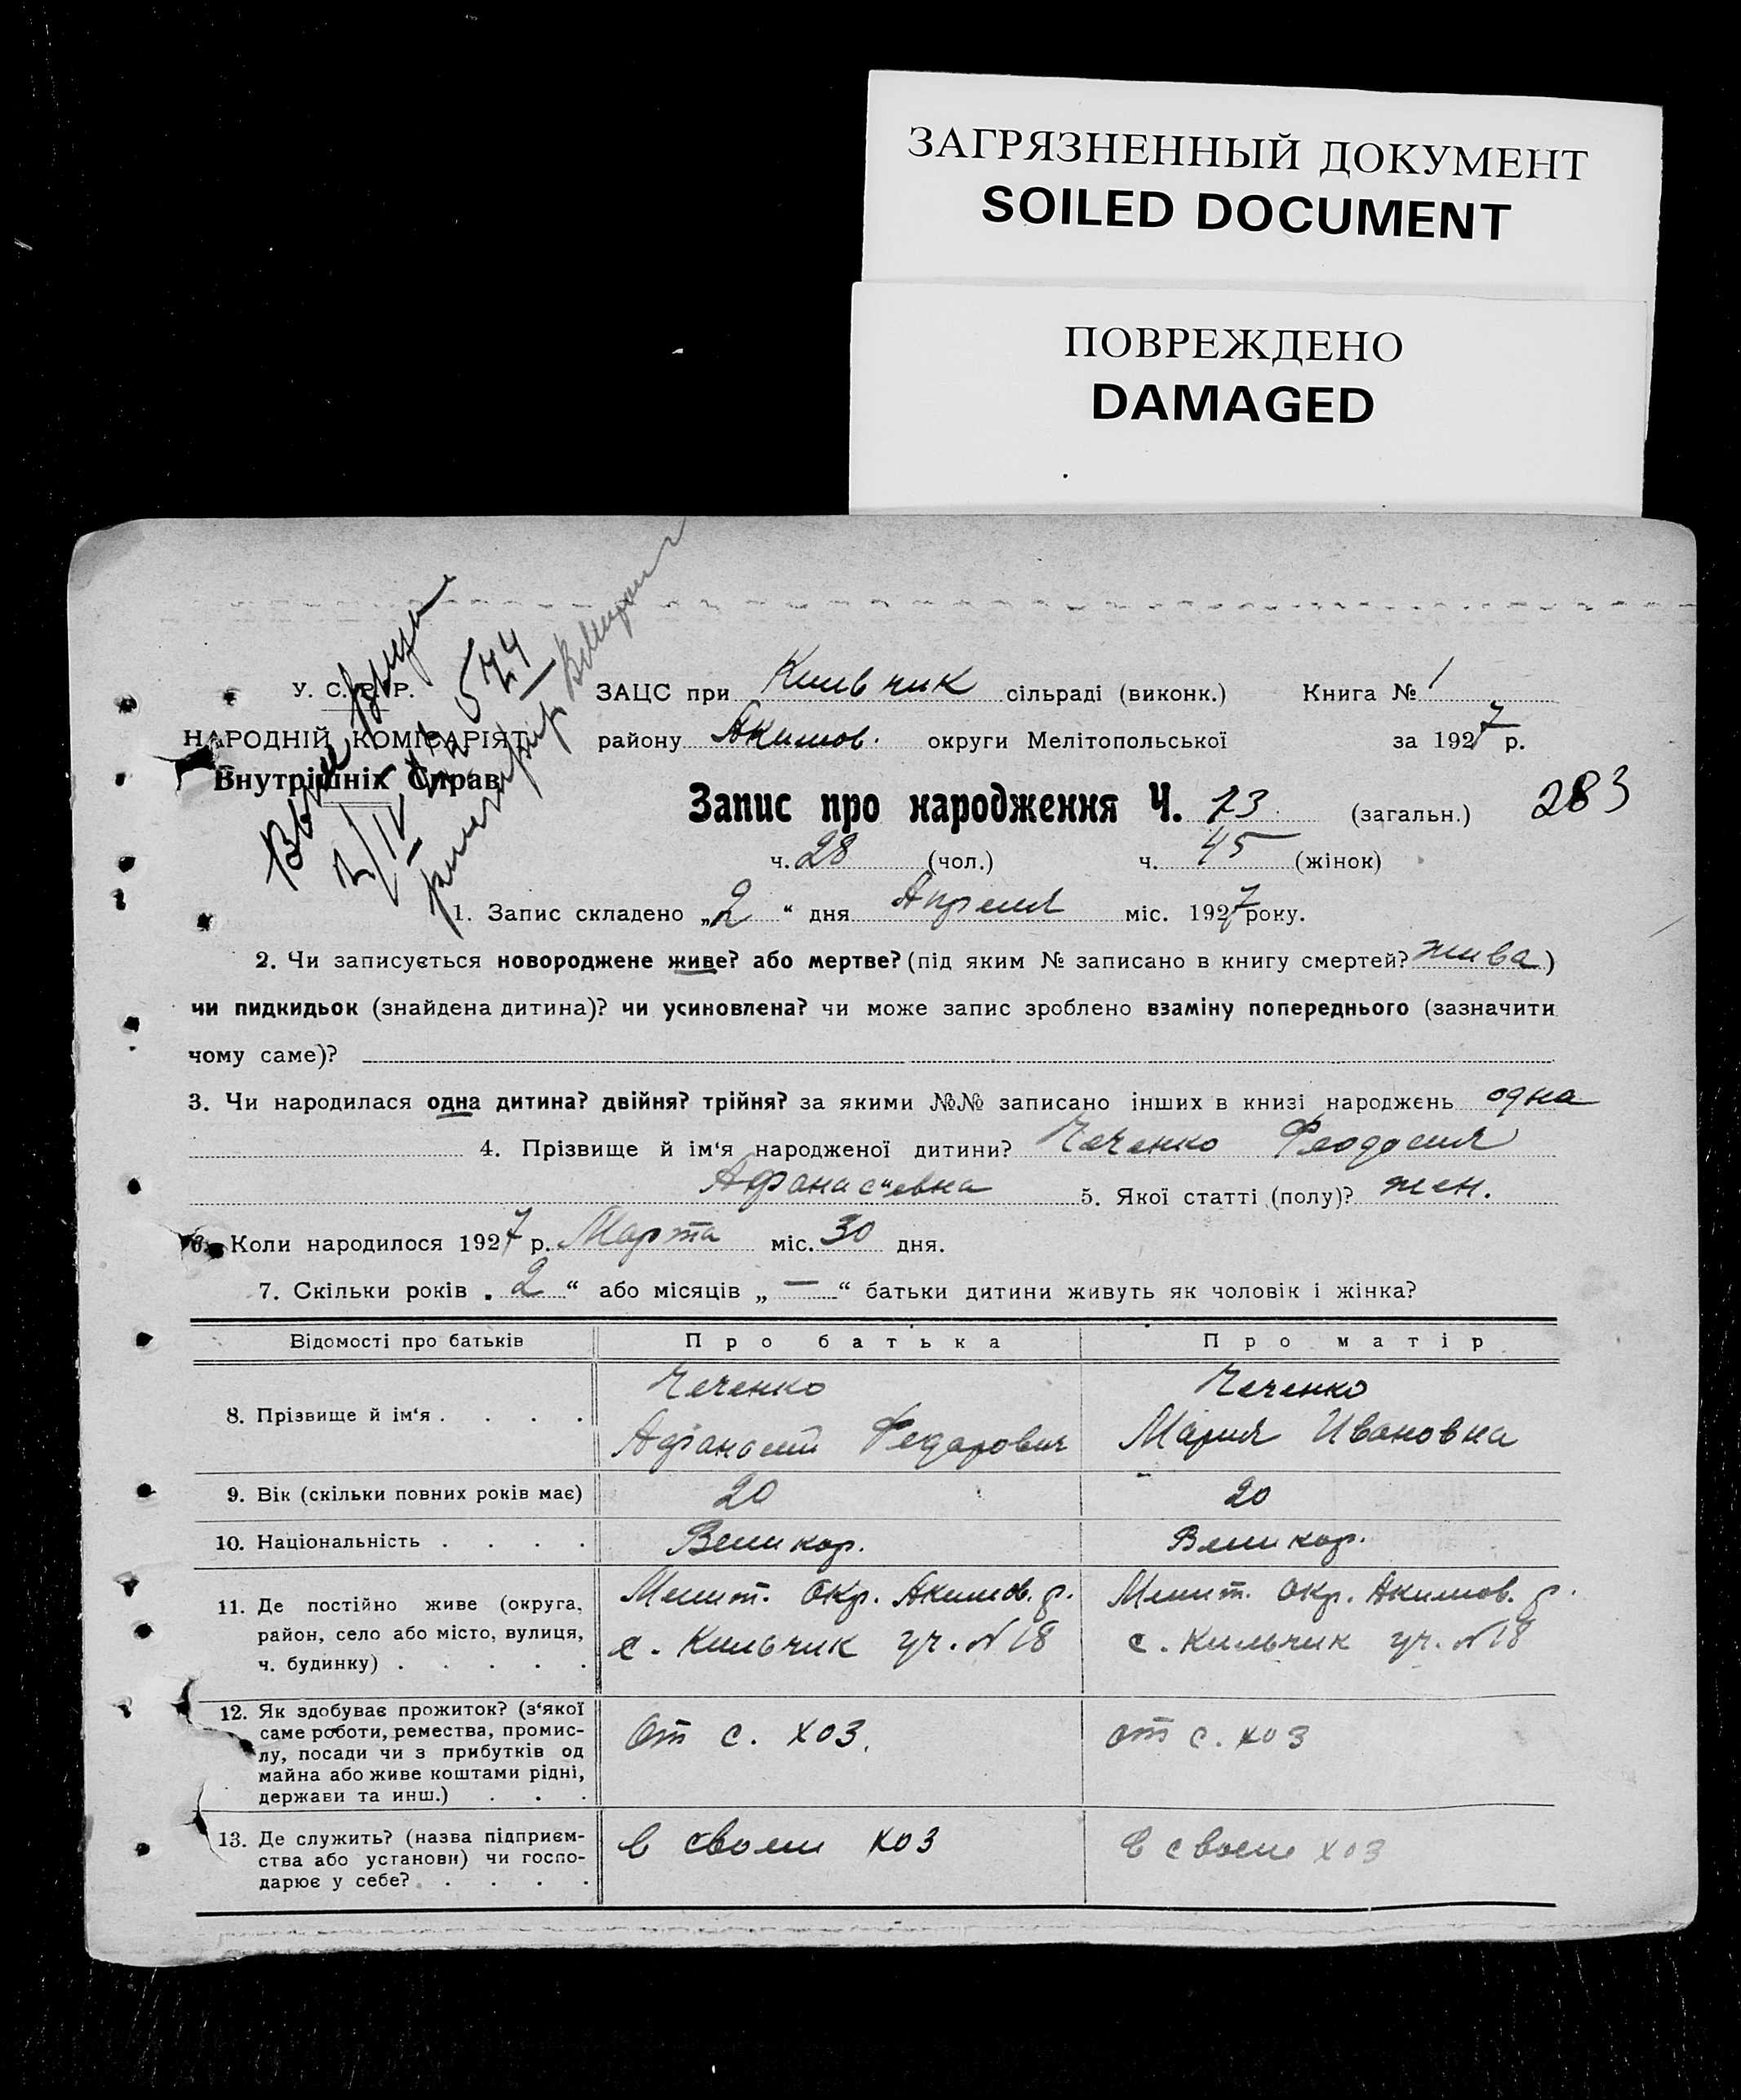 ЗАГРЯЗНЕННЫЙ ДОКУМЕНТ
SOILED DOCUMENT
ПОВРЕЖДЕНО
DAMAGED
У. С. Р. Р.
НАРОДНІЙ КОМІСАРІЯТ
Внутрішніх Справ
574
ЗАЦС при Кильчик сільраді (виконк.) Книга № 1
району Акимов. округи Мелітопольської за 1927 р.
Запис про народження Ч. 73 (загальн.) 283
ч. 28 (чол.) ч. 45 (жінок)
1. Запис складено „2“ дня Апреля міс. 1927 року.
2. Чи записується новороджене живе? або мертве? (під яким № записано в книгу смертей? жива)
чи пидкидьок (знайдена дитина)? чи усиновлена? чи може запис зроблено взаміну попереднього (зазначити
чому саме)?
3. Чи народилася одна дитина? двійня? трійня? за якими №№ записано інших в книзі народжень одна
4. Прізвище й ім‘я народженої дитини? Чеченко Феодосия
Афанасиевна 5. Якої статті (полу)? жен.
6. Коли народилося 1927 р. Марта міс. 30 дня.
7. Скільки років „2“ або місяців „—“ батьки дитини живуть як чоловік і жінка?
Відомості про батьків Про батька Про матір
8. Прізвище й ім‘я . . . . Чеченко Афанасий Федорович Чеченко Мария Ивановна
9. Вік (скільки повних років має) 20 20
10. Національність . . . . Великор. Великор.
11. Де постійно живе (округа, Мелит. окр. Акимов. р. Мелит. окр. Акимов. р.
район, село або місто, вулиця, с. Кильчик уч. № 18 с. Кильчик уч. № 18
ч. будинку) . . . . .
12. Як здобуває прожиток? (з‘якої
саме роботи, ремества, промис- От с. хоз. от с. хоз
лу, посади чи з прибутків од
майна або живе коштами рідні,
держави та инш.) . . .
13. Де служить? (назва підприєм- в своем хоз в своем хоз
ства або установи) чи госпо-
дарює у себе? . . . .